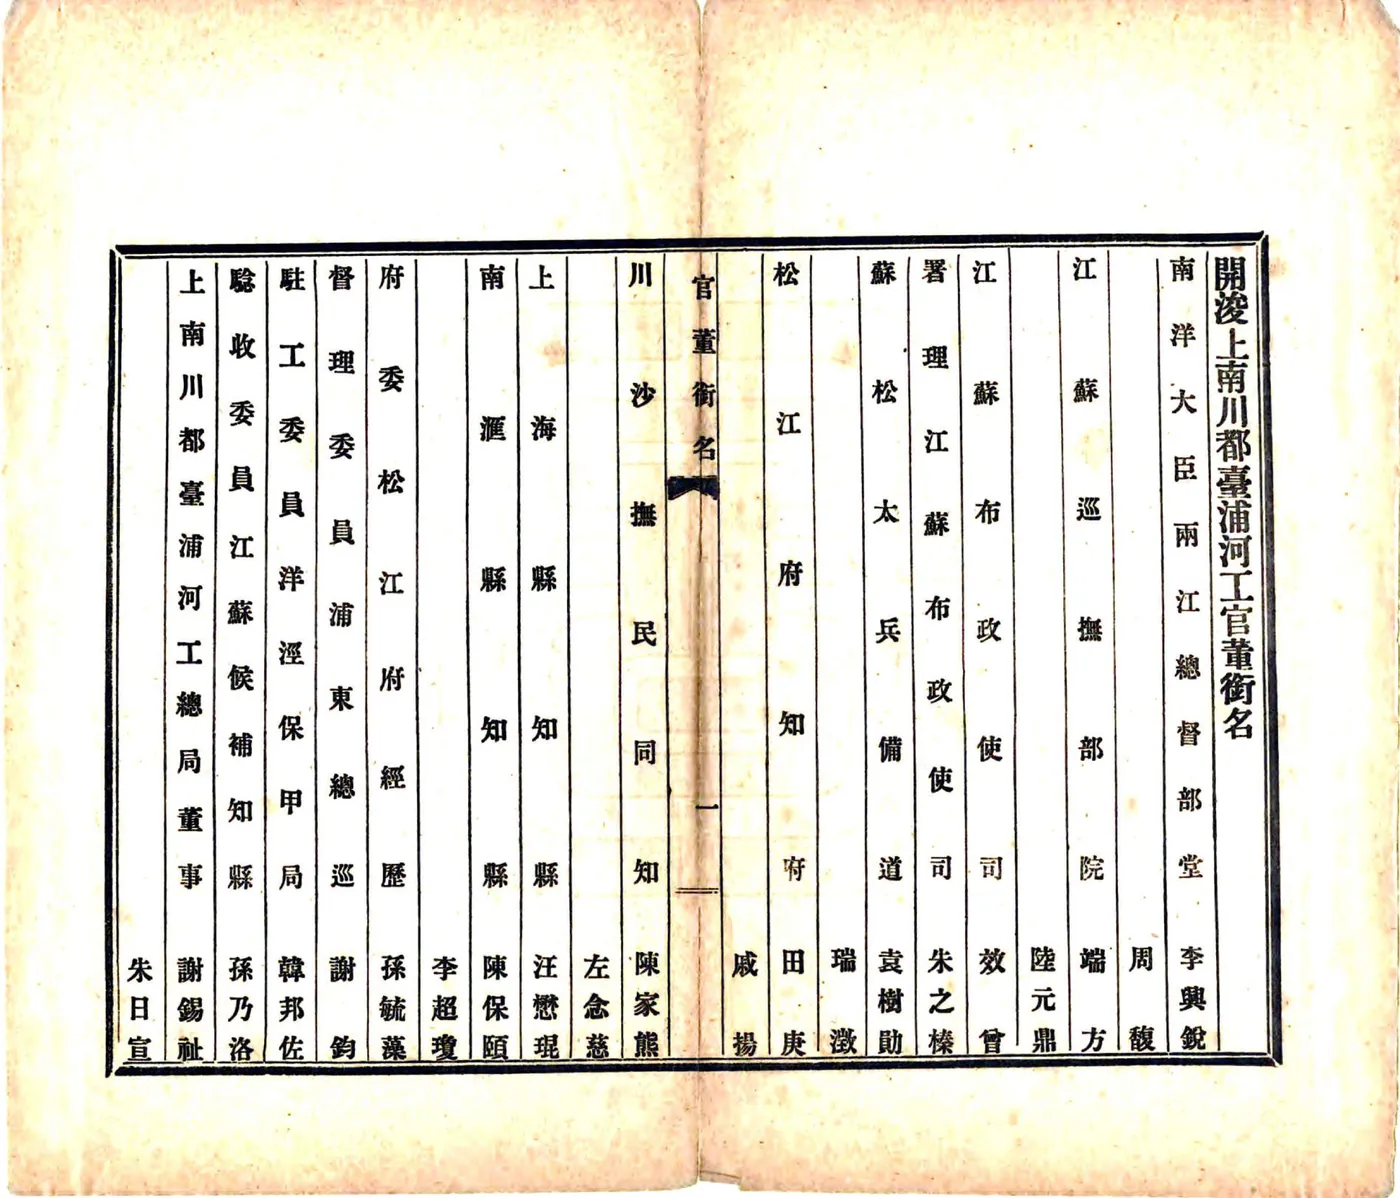 開浚上南川都臺浦河工官董銜名
南洋大臣兩江總督部堂 李興銳
周馥
江蘇巡撫部院 端方
陸元鼎
江蘇布政使司 效曾
署理江蘇布政使司 朱之榛
蘇松太兵備道 袁樹勛
瑞澂
松江府知府 田庚
戚揚
官董銜名 一
川沙撫民同知 陳家熊
左念慈
上海縣知縣 汪懋琨
南滙縣知縣 陳保頤
李超瓊
府委松江府經歷 孫毓藻
督理委員浦東總巡 謝鈞
駐工委員洋涇保甲局 韓邦佐
騐收委員江蘇候補知縣 孫乃洛
上南川都臺浦河工總局董事 謝錫祉
朱日宣